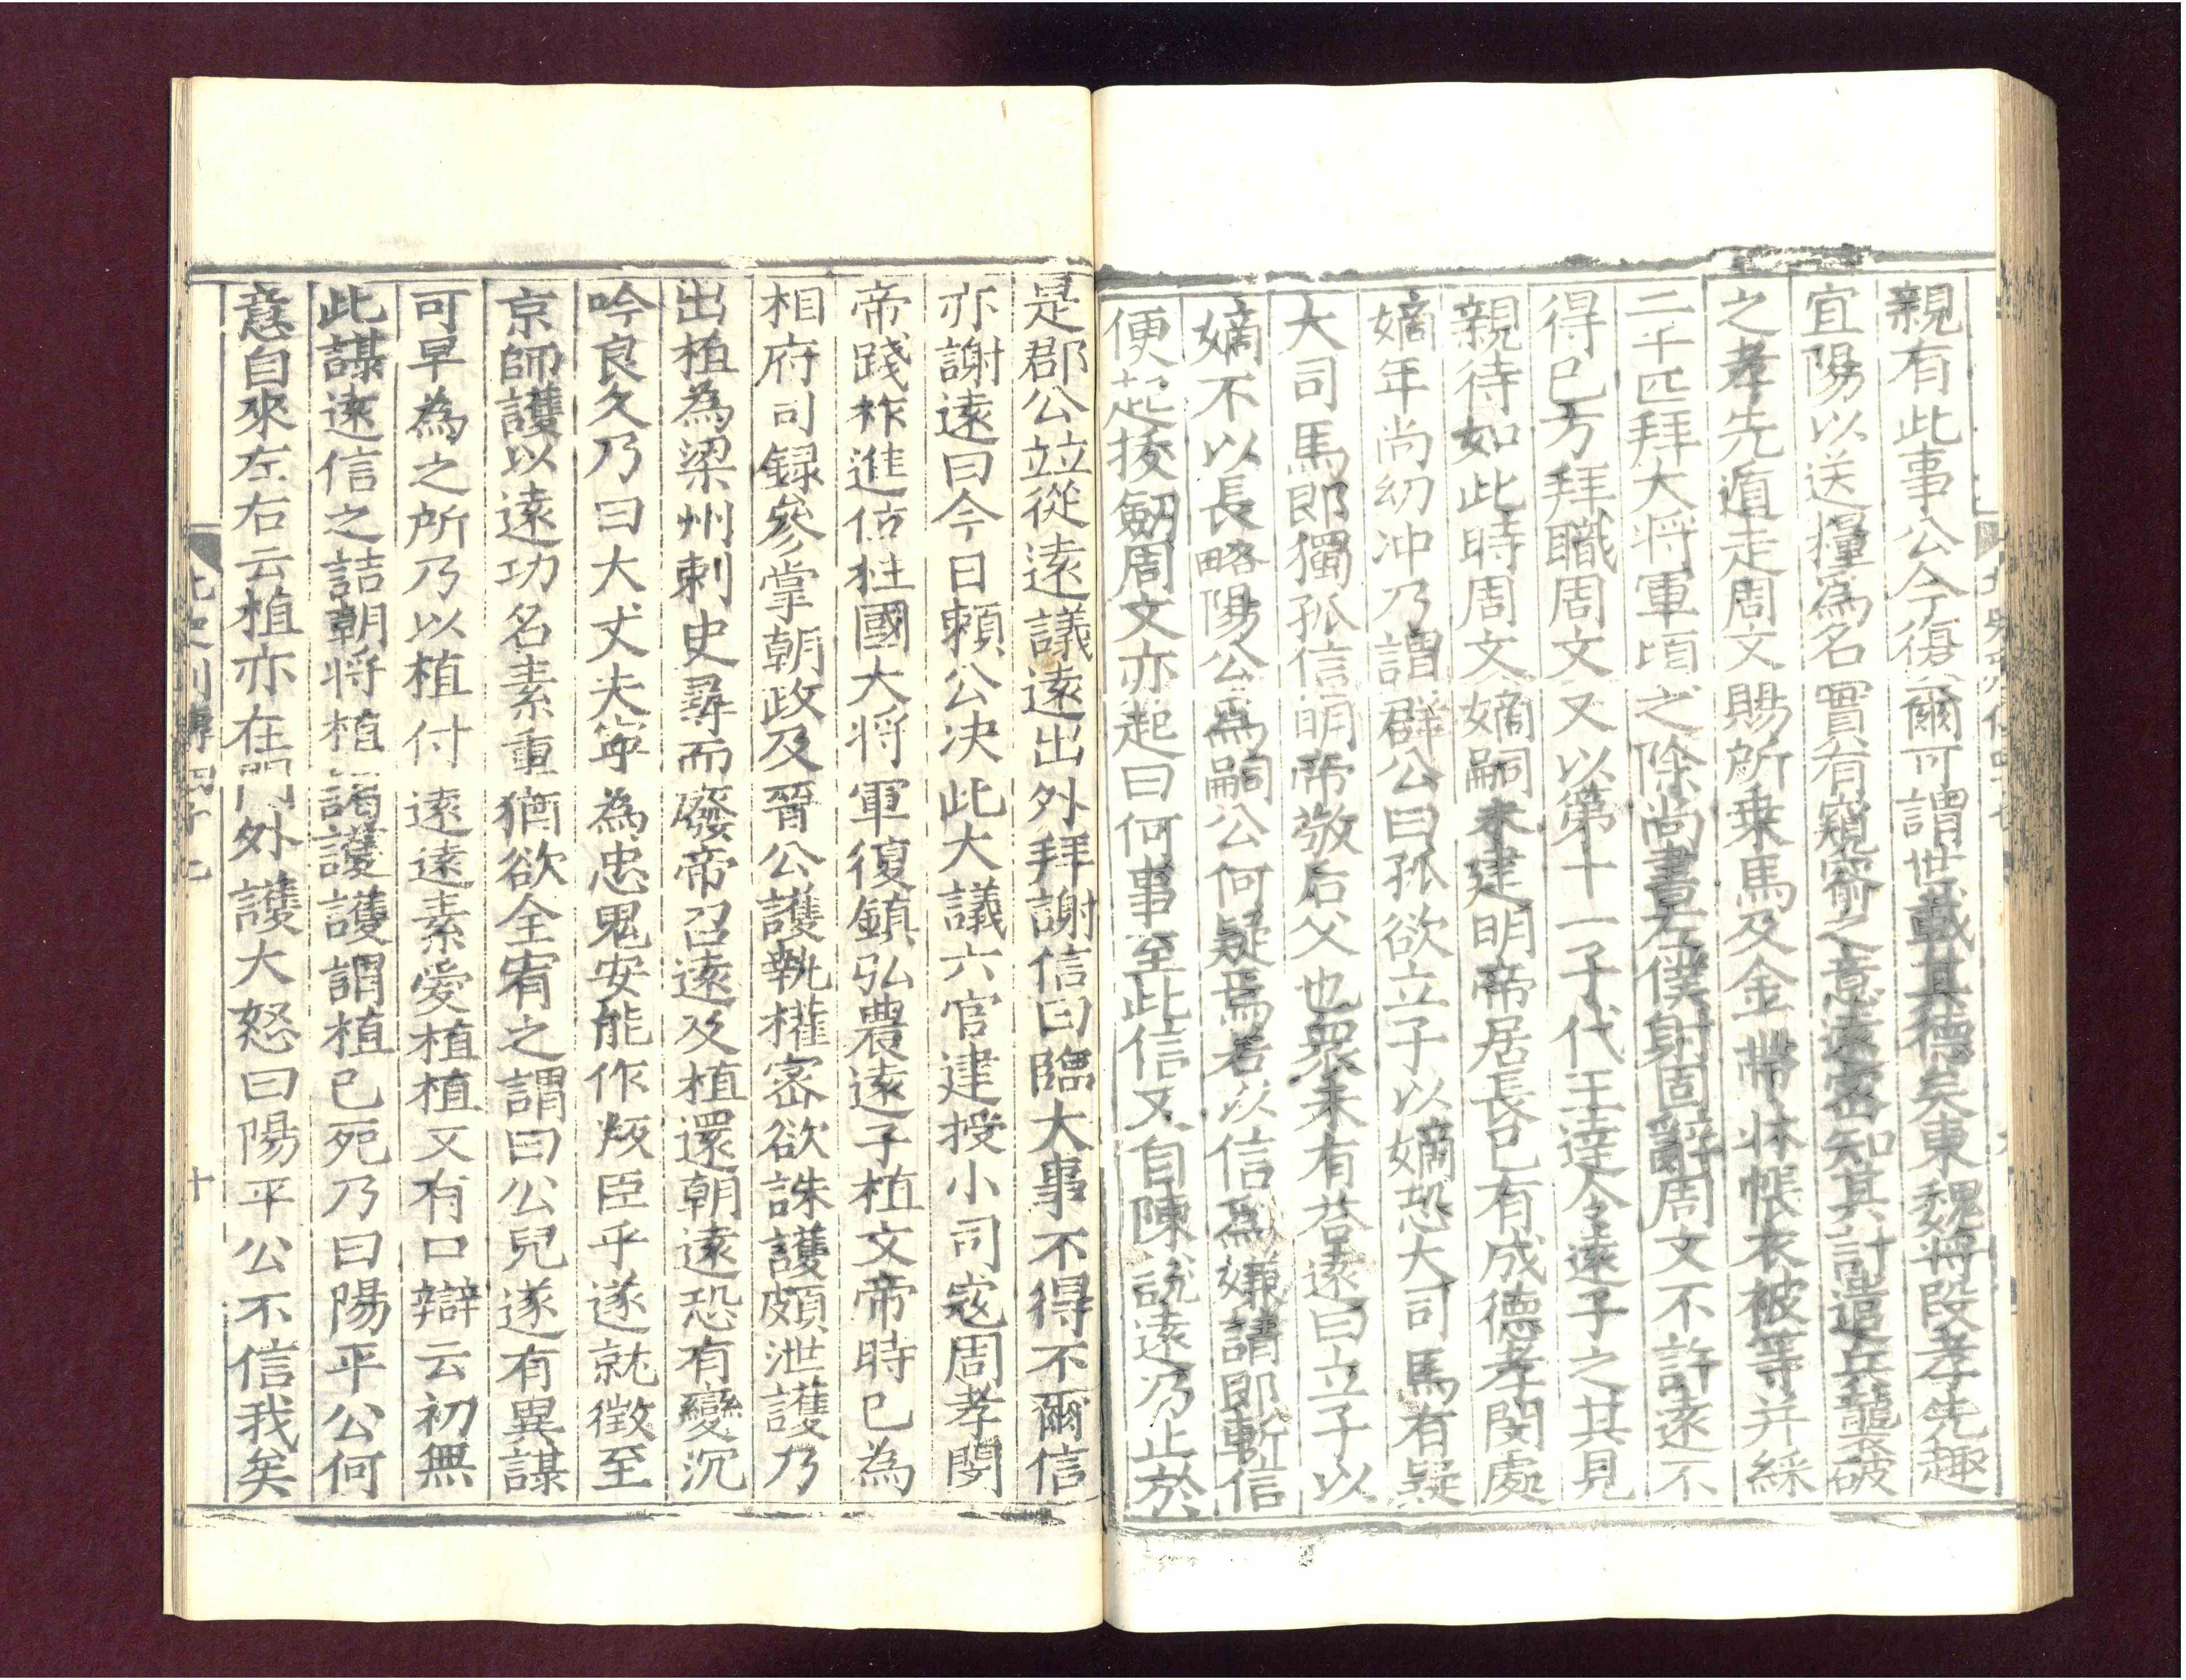 親有此事公今復爾可謂世載其德矣東魏將段孝先趣
宜陽以送糧爲名實有窺窬之意遠密知其計遣兵襲破
之孝先遁走周文賜所乗馬及金帶牀帳衣被等并綵
二千匹拜大將軍頃之除尚書左僕射固辭周文不許遠不
得已方拜職周文又以第十一子代王達令遠子之其見
親待如此時周文嫡嗣未建明帝居長已有成德孝閔處
嫡年尚幼冲乃謂群公曰孤欲立子以嫡恐大司馬有疑
大司馬即獨孤信明帝敬后父也衆未有荅遠曰立子以
嫡不以長略陽公爲嗣公何疑焉若以信爲嫌請即斬信
便起拔劒周文亦起曰何事至此信又自陳説遠乃止於
是郡公並從遠議遠出外拜謝信曰臨大事不得不爾信
亦謝遠曰今日頼公决此大議六官建授小司寇周孝閔
帝踐祚進位柱國大將軍復鎮弘農遠子植文帝時已為
相府司録參掌朝政及晉公護執權密欲誅護頗泄護乃
出植為梁州刺史尋而廢帝召遠及植還朝遠恐有變沉
吟良久乃曰大丈夫寧為忠鬼安能作叛臣乎遂就徵至
京師護以遠功名素重猶欲全宥之謂曰公兒遂有異謀
可早為之所乃以植付遠遠素愛植植又有口辯云初無
此謀遠信之詰朝將植謁護護謂植已死乃曰陽平公何
意自來左右云植亦在門外護大怒曰陽平公不信我矣
北史列傳四十七
十